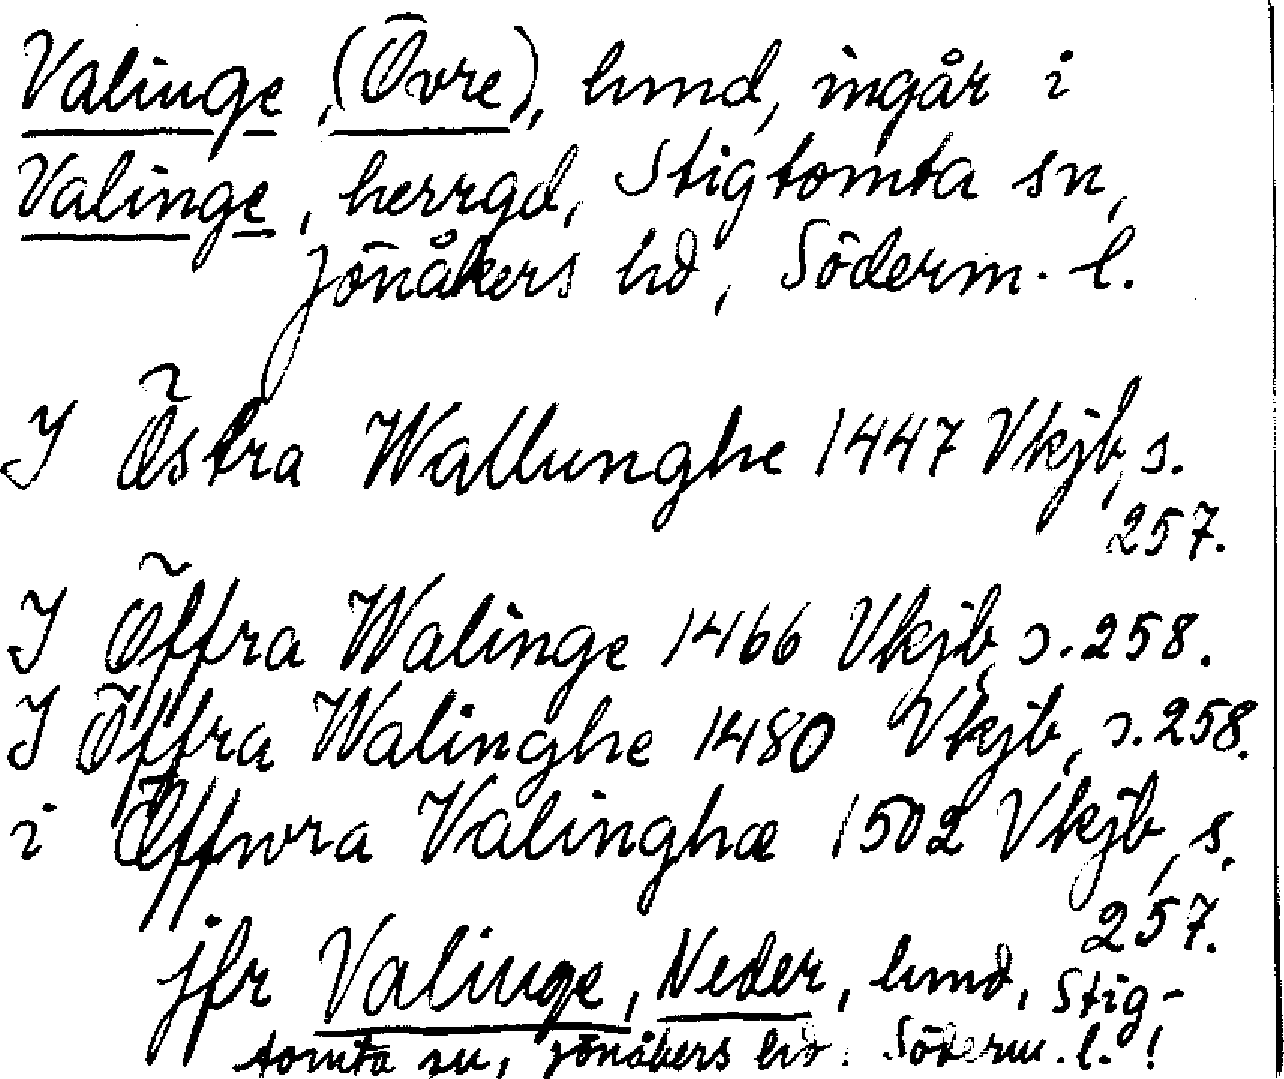 Valinge, (Övre), hmd, ingår i
Valinge, herrgd, Stigtomta sn,
Jönåkers hd, Söderm. l.
I Östra Wallunghe 1447 Vkjb, s.
257.
I Öffra Walinge 1466 Vkjb, s. 258.
I Öffra Walinghe 1480 Vkjb, s. 258.
i Öffwra Valinghæ 1502 Vkjb, s.
257.
jfr Valinge, Neder, hmd, Stig-
tomta sn, Jönåkers hd. Söderm. l. !